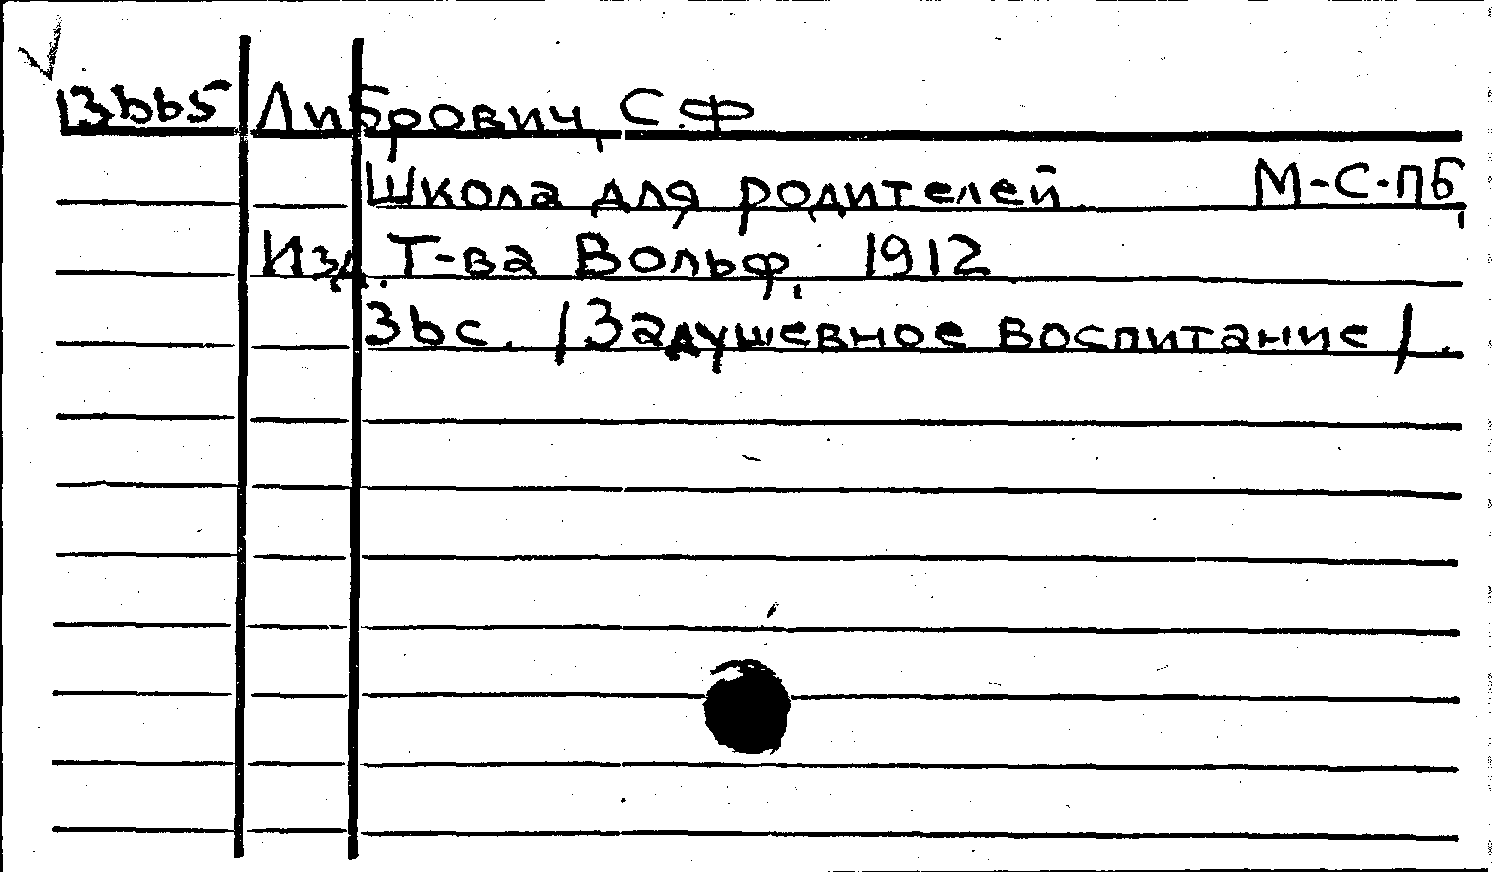 13665 Либрович, С.Ф
Школа для родителей. М-С-Пб,
Изд. Т-ва Вольф, 1912
36с. /Задушевное воспитание/.